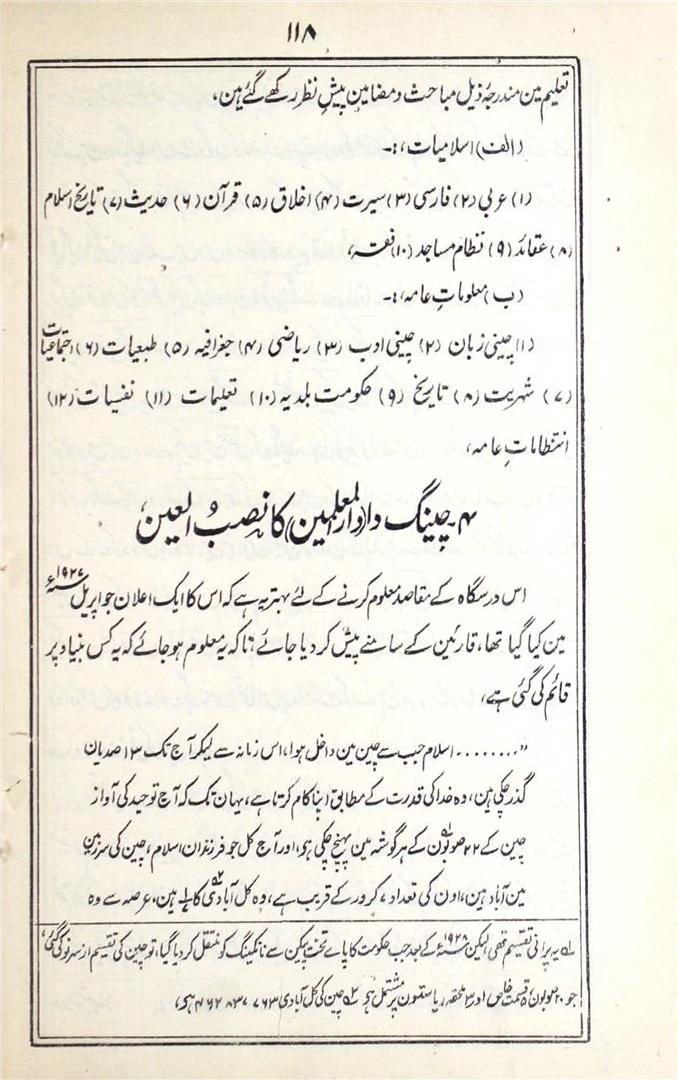 ۱۱۸
تعلیم مین مندرجۂ ذیل مباحث و مضامین پیشِ نظر رکھے گئے ہین،
(الف) اسلامیات، :-
(۱) عربی (۲) فارسی (۳) سیرت (۴) اخلاق (۵) قرآن (۶) حدیث (۷) تاریخ اسلام
(۸) عقائد (۹) نظام مساجد (۱۰) فقہ،
(ب) معلوماتِ عامہ، :-
(۱) چینی زبان (۲) چینی ادب (۳) ریاضی (۴) جغرافیہ (۵) طبعیات (۶) اجتماعیات
(۷) شہریت (۸) تاریخ (۹) حکومت بلدیہ (۱۰) تعلیمات (۱۱) نفسیات (۱۲)
انتظاماتِ عامہ،
۴- چینگ دا (دار المعلمین) کا نصب العین
اس درسگاہ کے مقاصد معلوم کرنے کے لئے بہتر یہ ہے کہ اس کا ایک اعلان جو اپریل ۱۹۲۷ء
مین کیا گیا تھا، قارئین کے سامنے پیش کر دیا جائے؛ تاکہ یہ معلوم ہو جائے کہ یہ کس بنیاد پر
قائم کی گئی ہے،
"........ اسلام جب سے چین مین داخل ہوا، اس زمانہ سے لیکر آج تک ۱۳ صدیان
گذر چکی ہین، وہ خدا کی قدرت کے مطابق اپنا کام کرتا ہے، یہان تک کہ آج توحید کی آواز
چین کے ۲۲ صوبون کے ہر گوشہ مین پہنچ چکی ہی، اور آج کل جو فرزندانِ اسلام، چین کی سرزمین
مین آباد ہین، اون کی تعداد ۷ کرور کے قریب ہے، وہ کل آبادی کا ہین. عرصہ سے وہ
لہ یہ پرانی تقسیم تھی، لیکن ۱۹۲۸ء کے بعد جب حکومت کا پایے تخت پیکن سے نانکینگ کو منتقل کر دیا گیا، تو چین کی تقسیم از سر نو کی گئی،
جو ۲۰ صوبون، قسمت خاص اور ۳ ملحقہ ریاستون پر مشتمل ہی، چین کی کل آبادی ۴۶۲۸۳۷۷۶۳ ہی،